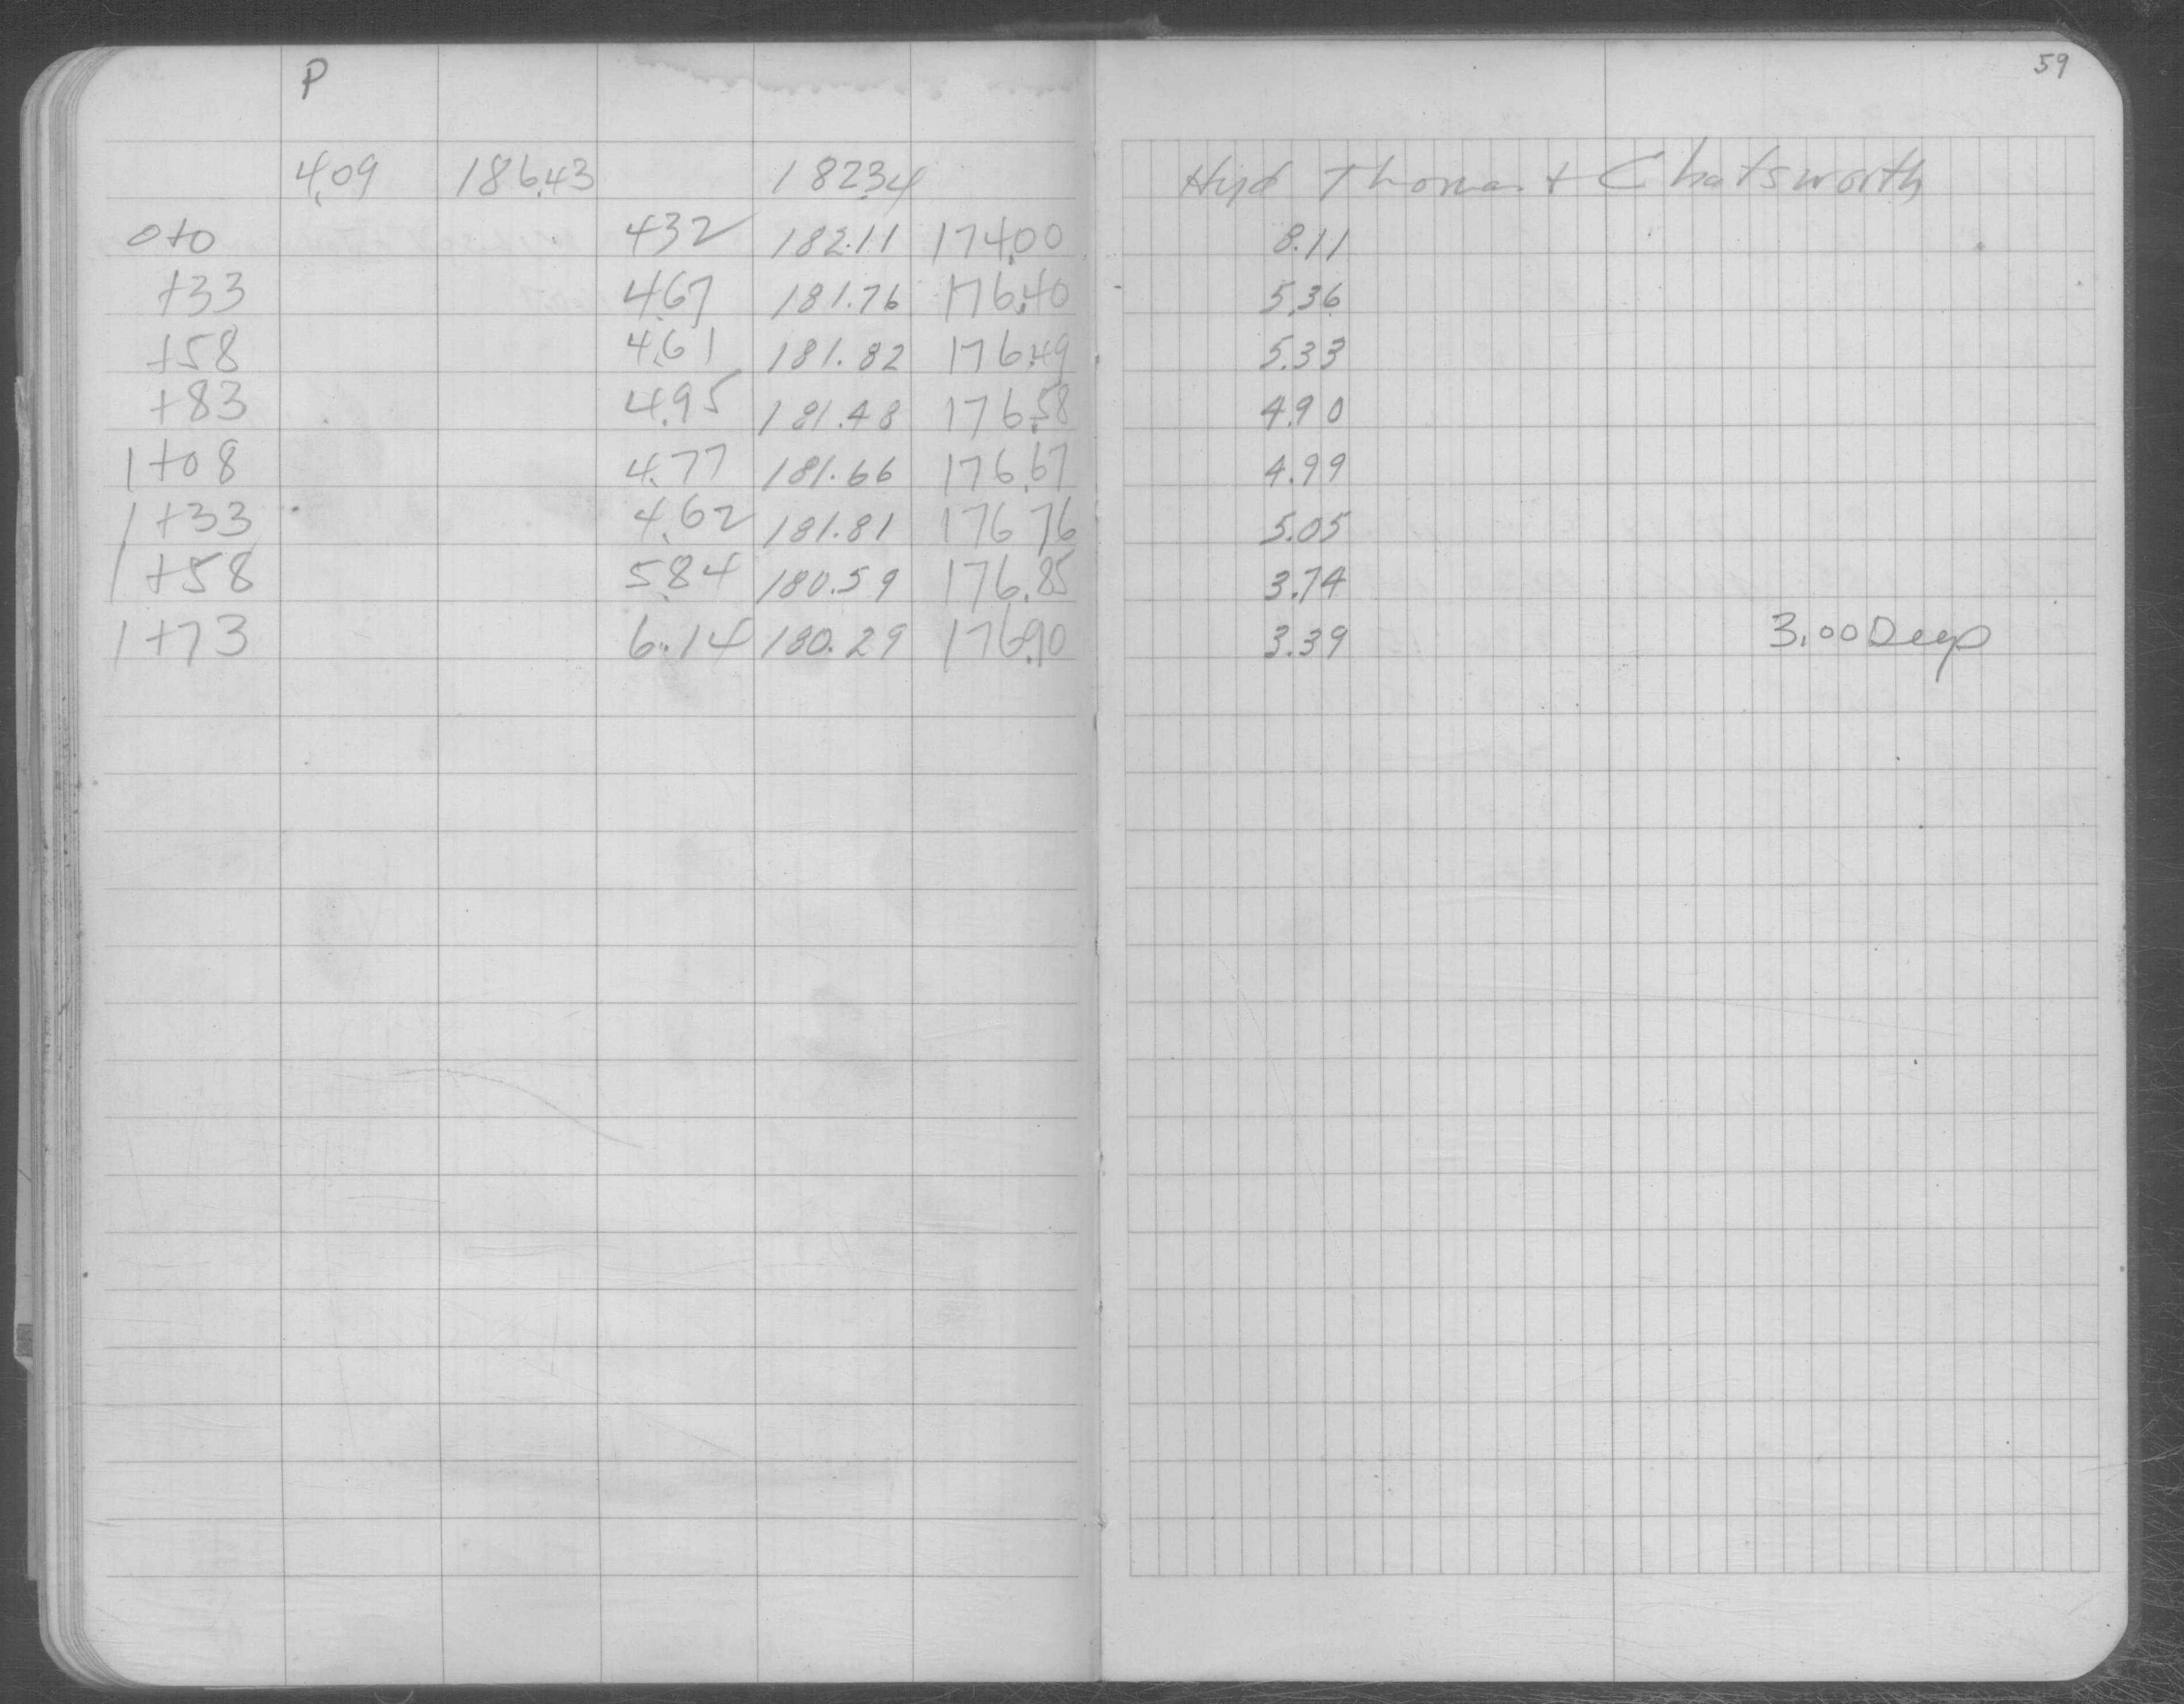 P 59
4.09 186.43 182.34 Hyd Thomas + Chatsworth
0+0 4.32 182.11 174.00 8.11
+33 4.67 181.76 176.40 5.36
+58 4.61 181.82 176.49 5.33
+83 4.95 181.48 176.58 4.90
1+08 4.77 181.66 176.67 4.99
1+33 4.62 181.81 176.76 5.05
1+58 5.84 180.59 176.85 3.74
1+73 6.14 180.29 176.90 3.39 3.00 Deep